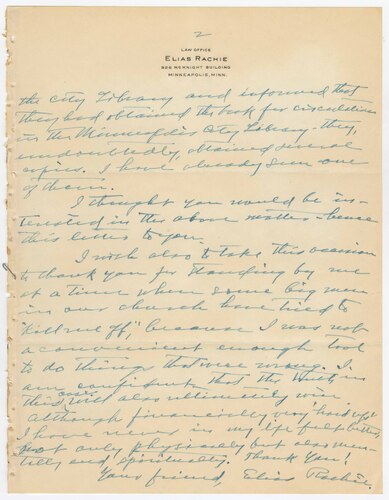 2
LAW OFFICE
ELIAS RACHIE
McKNIGHT BUILDING
MINNEAPOLIS, MINN.
the city Library and informed that
they had obtained the book for circulation
in the Minneapolis City Library - they,
undoubtedly, obtained several
copies. I have already seen one
of them.
I thought you would be in-
terested in the above matter - hence
this letter to you.
I wish also to take this occasion
to thank you for standing by me
at a time when some big men
in our church have tried to
"kill me off", because I was not
a convenient enough tool
to do things that were wrong. I
am confident that the truth in
this case will also ultimately win.
Although financially very "hard up"
I have never in my life felt better,
not only physically but also men-
tally and spiritually. Thank you!
Your friend, Elias Rachie.